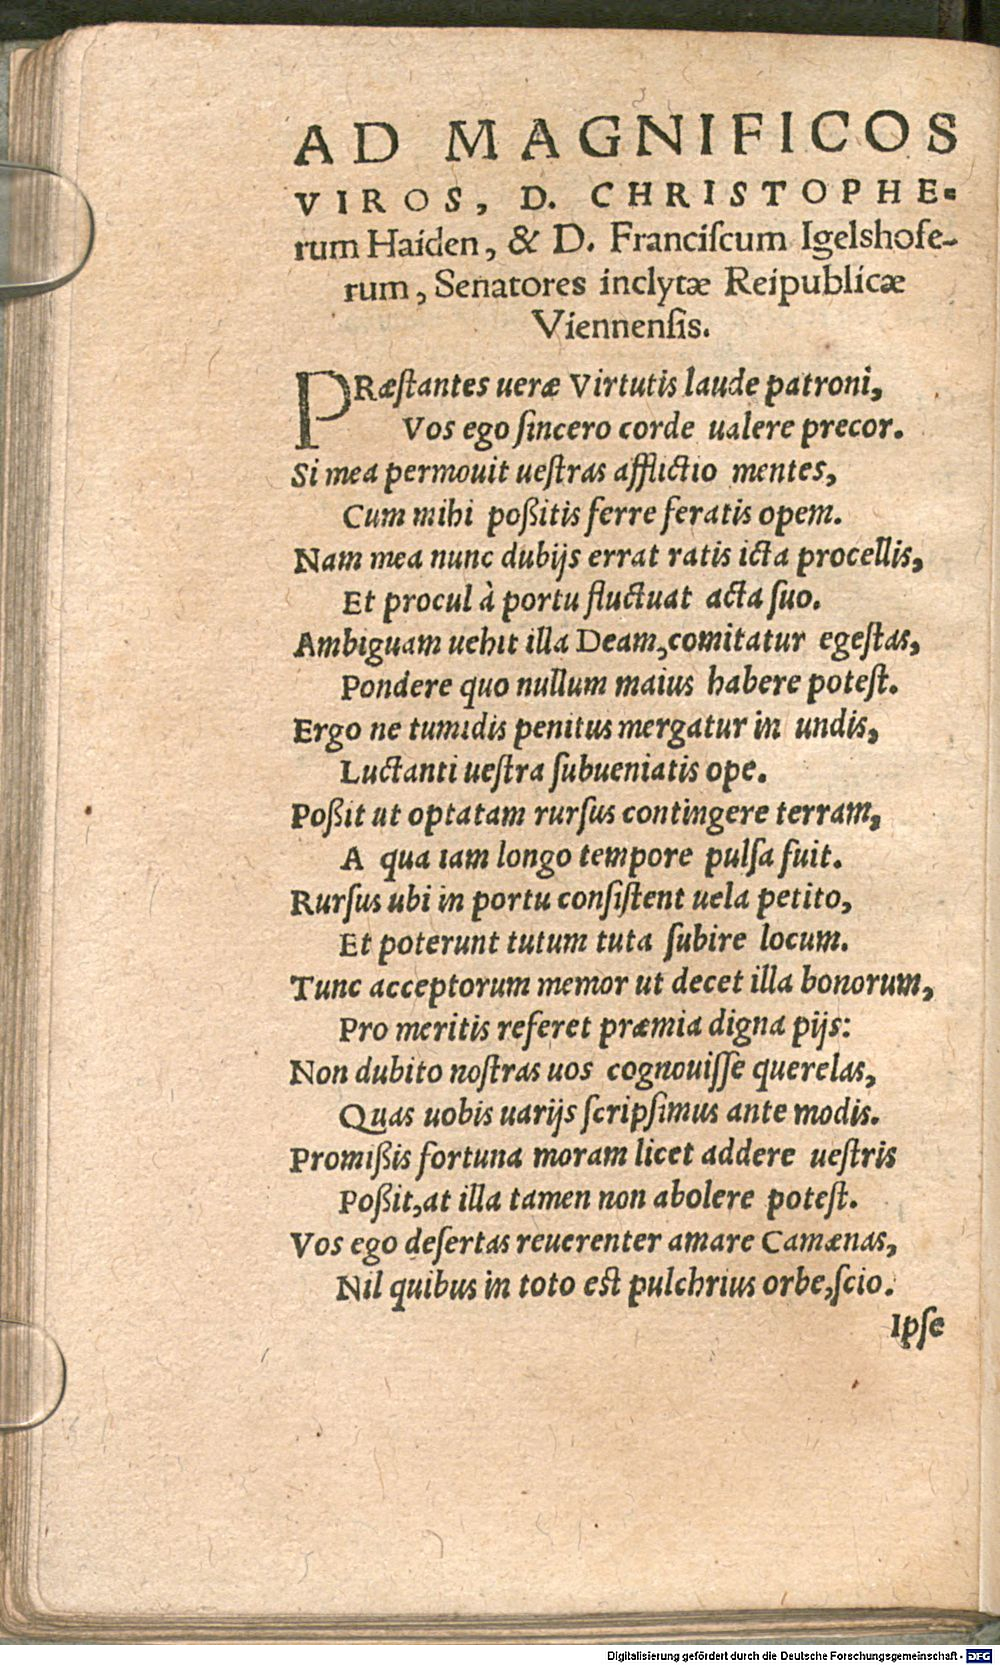 AD MAGNIFICOS
VIROS, D. CHRISTOPHE-
rum Haiden, & D. Franciſcum Igelshofe-
rum, Senatores inclytæ Reipublicæ
Viennenſis.
PRæſtantes ueræ Virtutis laude patroni,
Vos ego ſincero corde ualere precor.
Si mea permouit ueſtras afflictio mentes,
Cum mihi poßitis ferre feratis opem.
Nam mea nunc dubijs errat ratis icta procellis,
Et procul à portu fluctuat acta ſuo.
Ambiguam uehit illa Deam, comitatur egeſtas,
Pondere quo nullum maius habere poteſt.
Ergo ne tumidis penitus mergatur in undis,
Luctanti ueſtra ſubueniatis ope.
Poßit ut optatam rurſus contingere terram,
A qua iam longo tempore pulſa fuit.
Rurſus ubi in portu conſiſtent uela petito,
Et poterunt tutum tuta ſubire locum.
Tunc acceptorum memor ut decet illa bonorum,
Pro meritis referet præmia digna pijs:
Non dubito noſtras uos cognouiſſe querelas,
Quas uobis uarijs ſcripſimus ante modis.
Promißis fortuna moram licet addere ueſtris
Poßit, at illa tamen non abolere poteſt.
Vos ego deſertas reuerenter amare Camænas,
Nil quibus in toto eſt pulchrius orbe, ſcio.
Ipſe
Digitalisierung gefördert durch die Deutsche Forschungsgemeinschaft - DFG